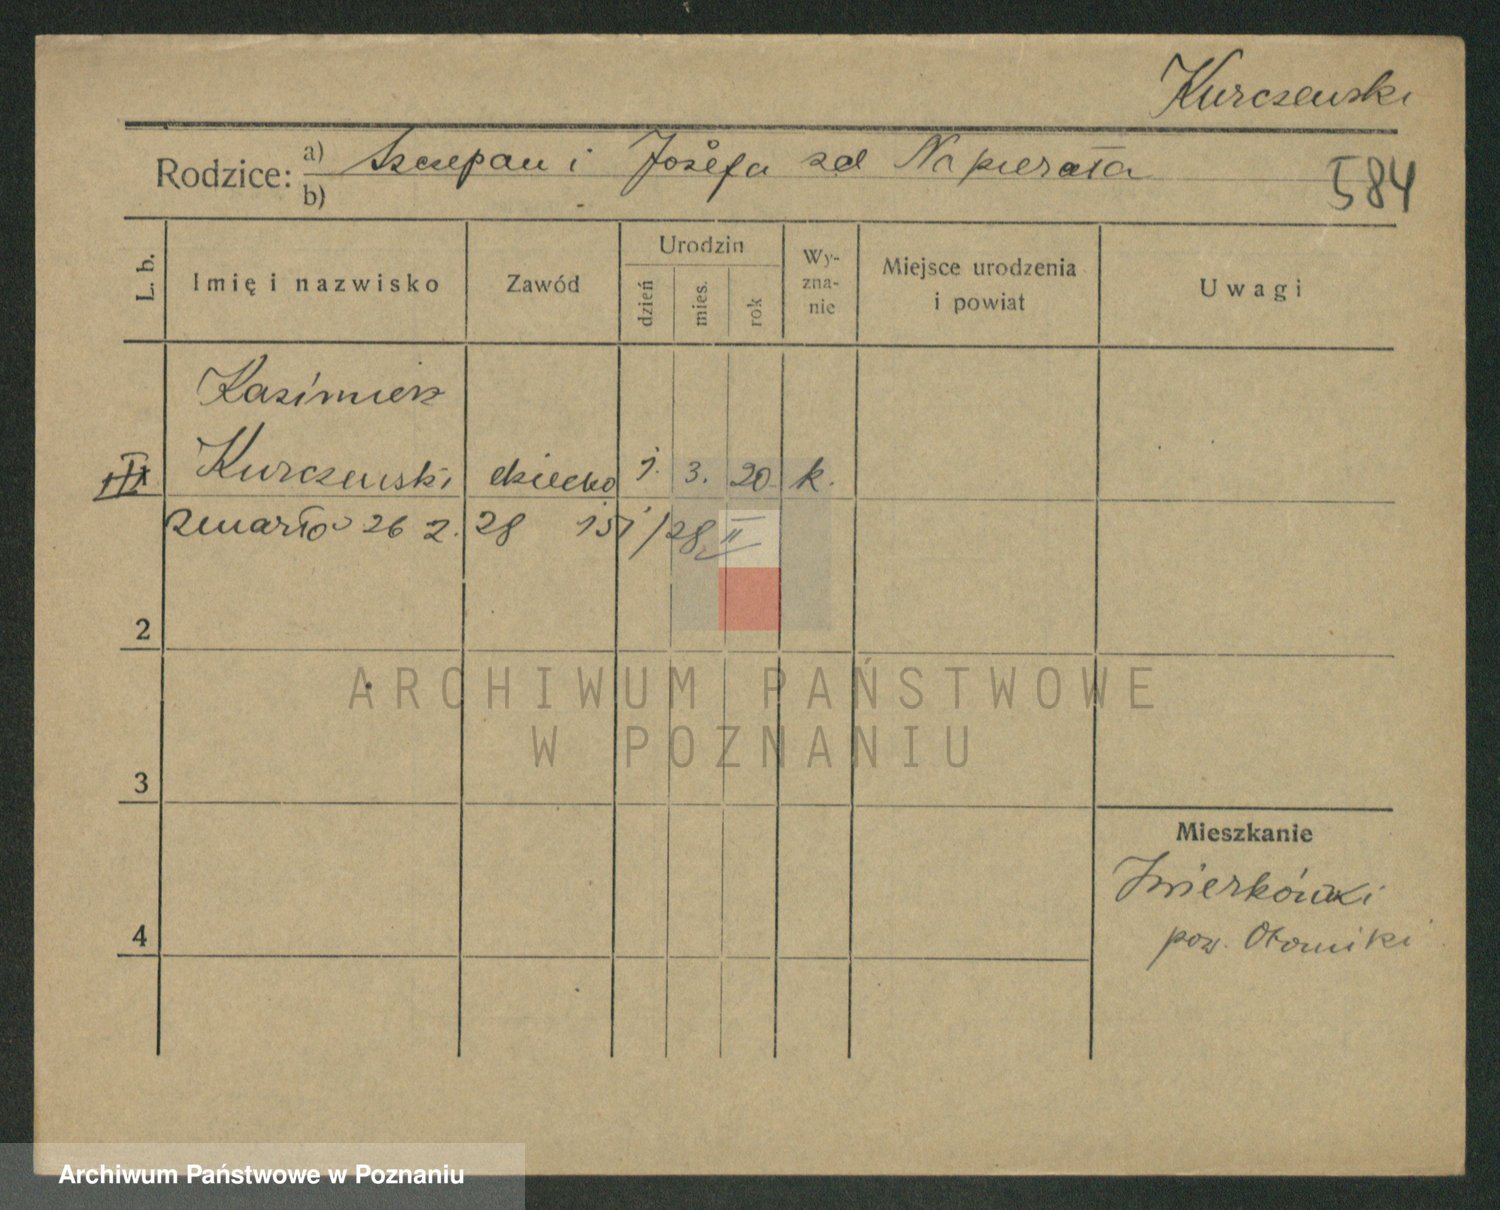 Kurczewski
Rodzice: a) Szczepan i Józefa zd Napierała
b)
584
L. b.
Imię i nazwisko
Zawód
Urodzin
dzień
mies.
rok
Wy-
zna-
nie
Miejsce urodzenia
i powiat
Uwagi
Kazimierz
Kurczewski dziecko 1. 3. 20 k.
zmarło 26 2. 28 151/28 II
2
3
4
Mieszkanie
pow.
ARCHIWUM PAŃSTWOWE
W POZNANIU
Archiwum Państwowe w Poznaniu